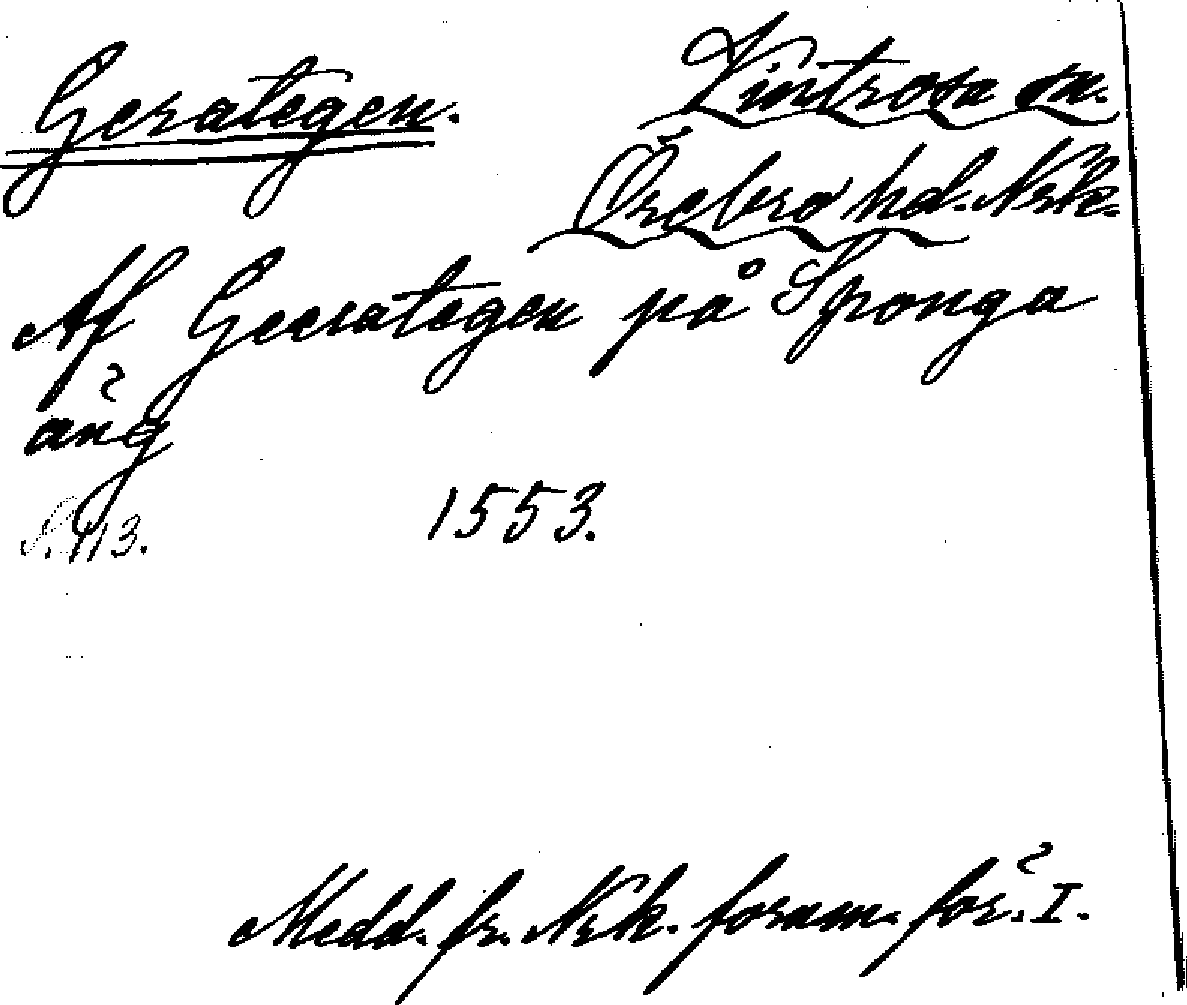 Gerategen.
Vintrosa sn.
Örebro hd. Nrk.
Af Geerategen på Sponga
äng
S. 113. 1553.
Medd. fr. Nrk. fornm. för. I.